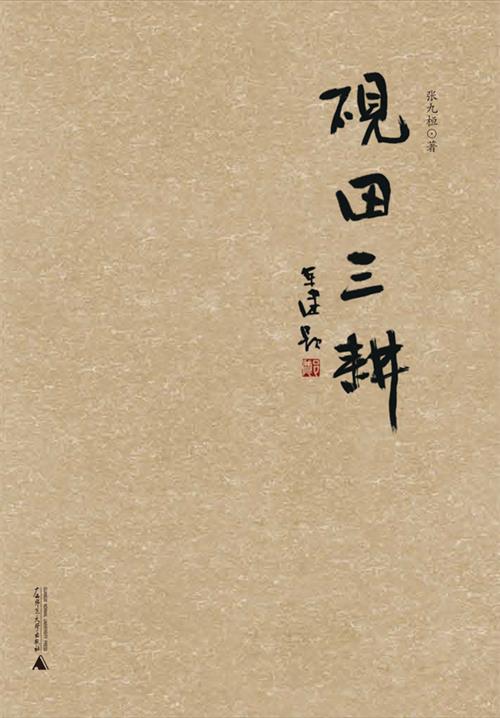 张九桓·著
砚田三耕
广西师范大学出版社
GUANGXI NORMAL UNIVERSITY PRESS